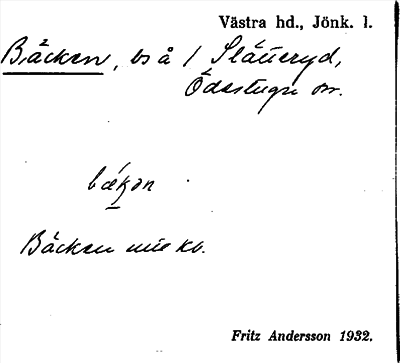 Västra hd., Jönk. l.
Bäcken, bs å / Slätteryd,
Ödestugu sn.
bækən
Bäcken mil kb.
Fritz Andersson 1932.